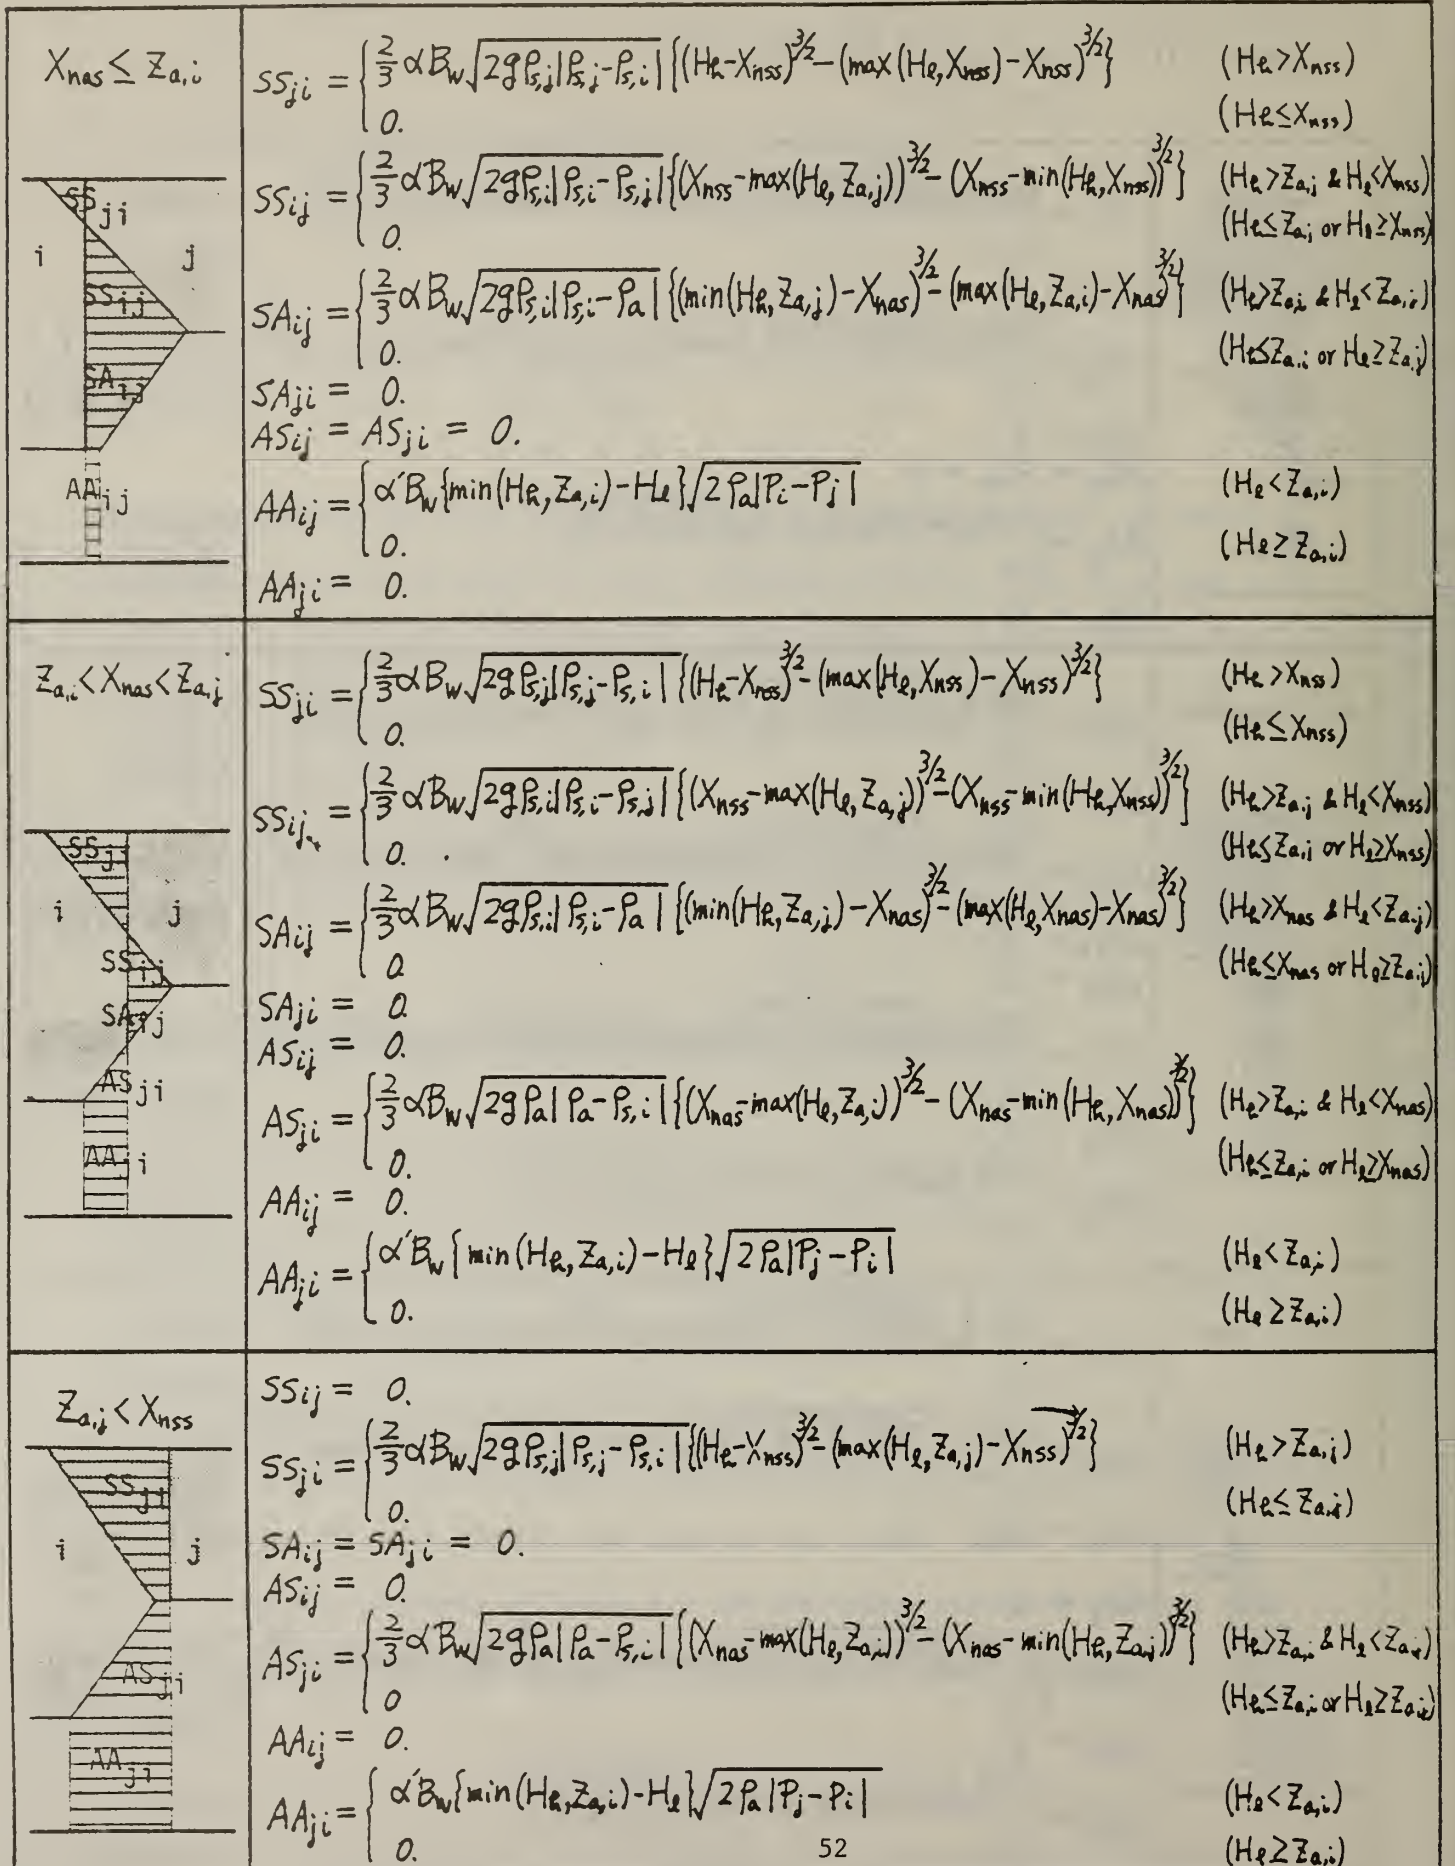 X_nas ≤ Z_a,i
SS_ji = { 2/3 αB_w √(2gρ_s,j|ρ_s,j-ρ_s,i|) {(H_h-X_nss)^3/2 - (max(H_l,X_nss)-X_nss)^3/2} (H_h>X_nss)
0. (H_h≤X_nss)
SS_ij = { 2/3 αB_w √(2gρ_s,i|ρ_s,i-ρ_s,j|) {(X_nss-max(H_l,Z_a,j))^3/2 - (X_nss-min(H_h,X_nss))^3/2} (H_h>Z_a,j & H_l<X_nss)
0. (H_h≤Z_a,j or H_l≥X_nss)
SA_ij = { 2/3 αB_w √(2gρ_s,i|ρ_s,i-ρ_a|) {(min(H_h,Z_a,j)-X_nas)^3/2 - (max(H_l,Z_a,i)-X_nas)^3/2} (H_h>Z_a,i & H_l<Z_a,j)
0. (H_h≤Z_a,i or H_l≥Z_a,j)
SA_ji = 0.
AS_ij = AS_ji = 0.
AA_ij = { α'B_w{min(H_h,Z_a,i)-H_l}√(2ρ_a|P_i-P_j|) (H_l<Z_a,i)
0. (H_l≥Z_a,i)
AA_ji = 0.
SS_ji
i j
SS_ij
SA_ij
AA_ij
Z_a,i<X_nas<Z_a,j
SS_ji = { 2/3 αB_w √(2gρ_s,j|ρ_s,j-ρ_s,i|) {(H_h-X_nss)^3/2 - (max(H_l,X_nss)-X_nss)^3/2} (H_h>X_nss)
0. (H_h≤X_nss)
SS_ij = { 2/3 αB_w √(2gρ_s,i|ρ_s,i-ρ_s,j|) {(X_nss-max(H_l,Z_a,j))^3/2 - (X_nss-min(H_h,X_nss))^3/2} (H_h>Z_a,j & H_l<X_nss)
0. (H_h≤Z_a,j or H_l≥X_nss)
SA_ij = { 2/3 αB_w √(2gρ_s,i|ρ_s,i-ρ_a|) {(min(H_h,Z_a,j)-X_nas)^3/2 - (max(H_l,X_nas)-X_nas)^3/2} (H_h>X_nas & H_l<Z_a,j)
0. (H_h≤X_nas or H_l≥Z_a,j)
SA_ji = 0.
AS_ij = 0.
AS_ji = { 2/3 αB_w √(2gρ_a|ρ_a-ρ_s,i|) {(X_nas-max(H_l,Z_a,j))^3/2 - (X_nas-min(H_h,X_nas))^3/2} (H_h>Z_a,i & H_l<X_nas)
0. (H_h≤Z_a,i or H_l≥X_nas)
AA_ij = 0.
AA_ji = { α'B_w{min(H_h,Z_a,i)-H_l}√(2ρ_a|P_j-P_i|) (H_l<Z_a,i)
0. (H_l≥Z_a,i)
SS_ji
i j
SS_ij
SA_ij
AS_ji
AA_ji
Z_a,j<X_nss
SS_ij = 0.
SS_ji = { 2/3 αB_w √(2gρ_s,j|ρ_s,j-ρ_s,i|) {(H_h-X_nss)^3/2 - (max(H_l,Z_a,j)-X_nss)^3/2} (H_h>Z_a,j)
0. (H_h≤Z_a,j)
SA_ij = SA_ji = 0.
AS_ij = 0.
AS_ji = { 2/3 αB_w √(2gρ_a|ρ_a-ρ_s,i|) {(X_nas-max(H_l,Z_a,i))^3/2 - (X_nas-min(H_h,Z_a,j))^3/2} (H_h>Z_a,i & H_l<Z_a,j)
0 (H_h≤Z_a,i or H_l≥Z_a,j)
AA_ij = 0.
AA_ji = { α'B_w{min(H_h,Z_a,i)-H_l}√(2ρ_a|P_j-P_i|) (H_l<Z_a,i)
0. (H_l≥Z_a,i)
SS_ji
i j
AS_ji
AA_ji
52